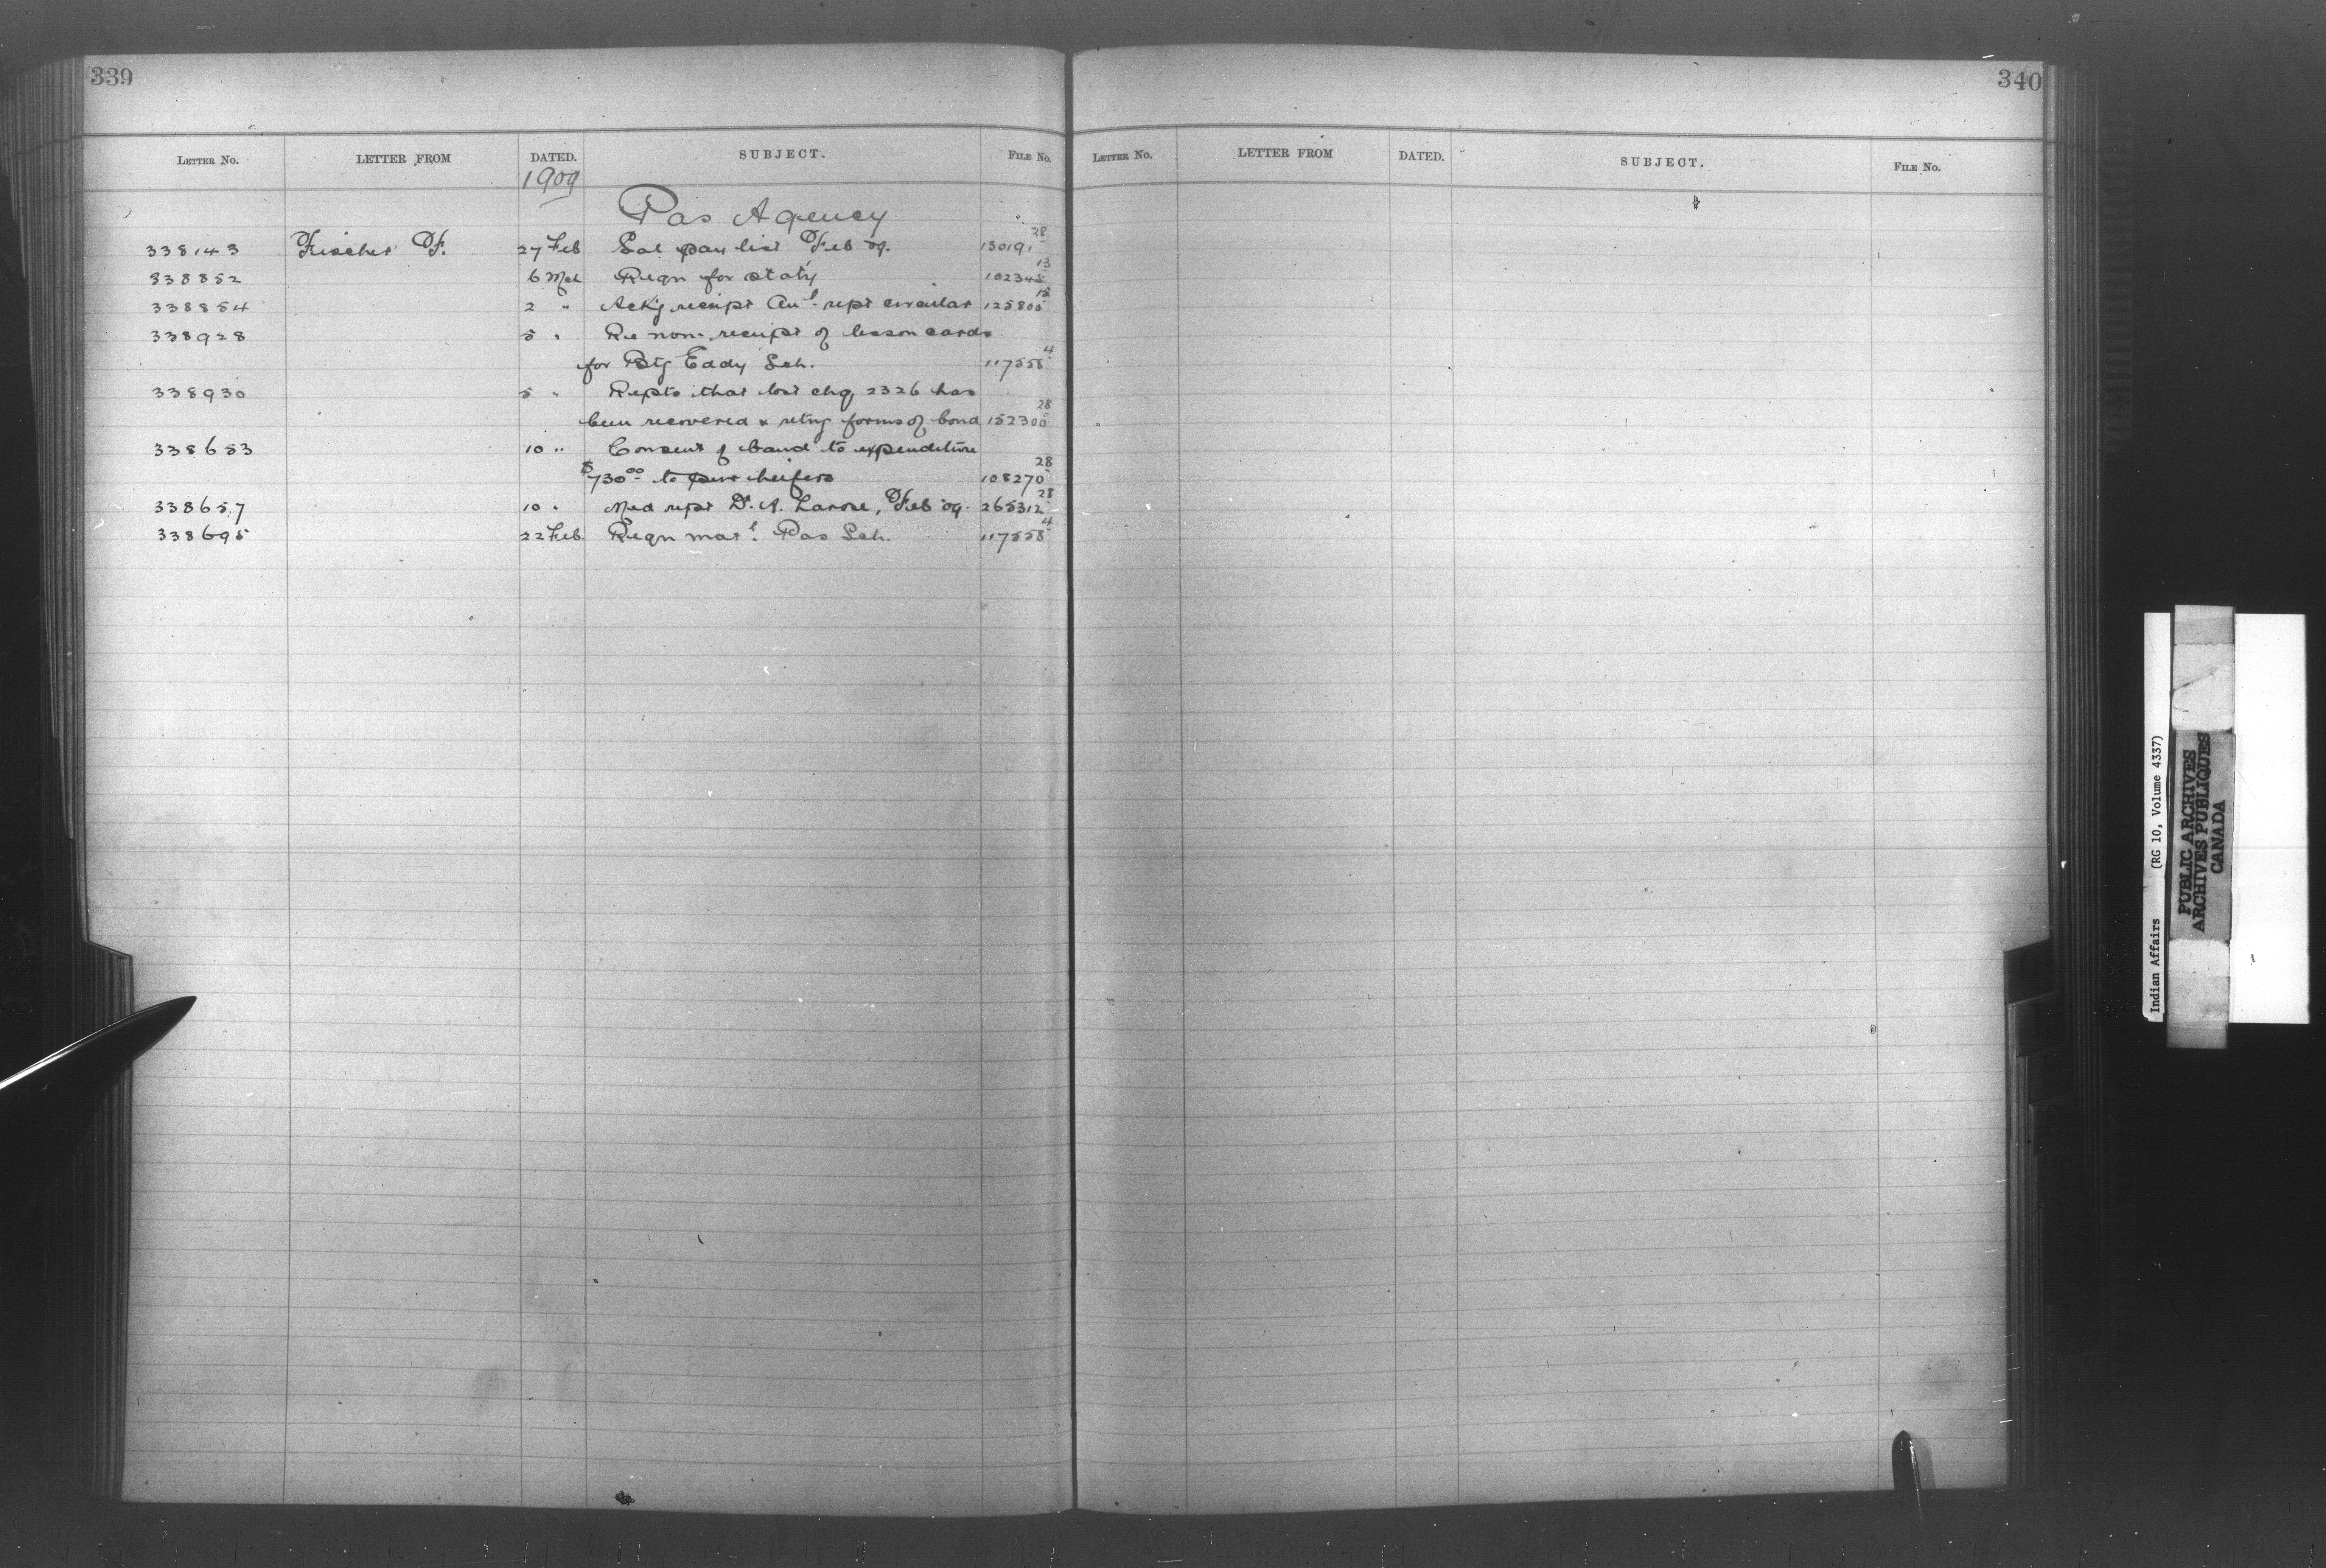 339
LETTER NO. LETTER FROM DATED. SUBJECT. FILE No.
1909
Pas Agency
338143 Fischer F. 27 Feb Sal pay list Feb 09. 130191 28
338852 6 Mch Reqn for staty 102345 13
338854 2 " Ack'g receipt Anl. rept circular 125805 15
338928 5 " Re non-receipt of lesson cards
for Big Eddy Sch. 117558 4
338930 5 " Repts that lost chq 2326 has
been recovered & retng forms of bond 152300 28
338653 10 " Consent of band to expenditure
$730.00 to pur heifers 108270 28
338657 10 " Med rept Dr. A. Larose, Feb 09. 265312 28
338695 22 Feb. Reqn matl. Pas Sch. 117558 4
340
LETTER NO. LETTER FROM DATED. SUBJECT. FILE No.
Indian Affairs (RG 10, Volume 4337)
PUBLIC ARCHIVES
ARCHIVES PUBLIQUES
CANADA